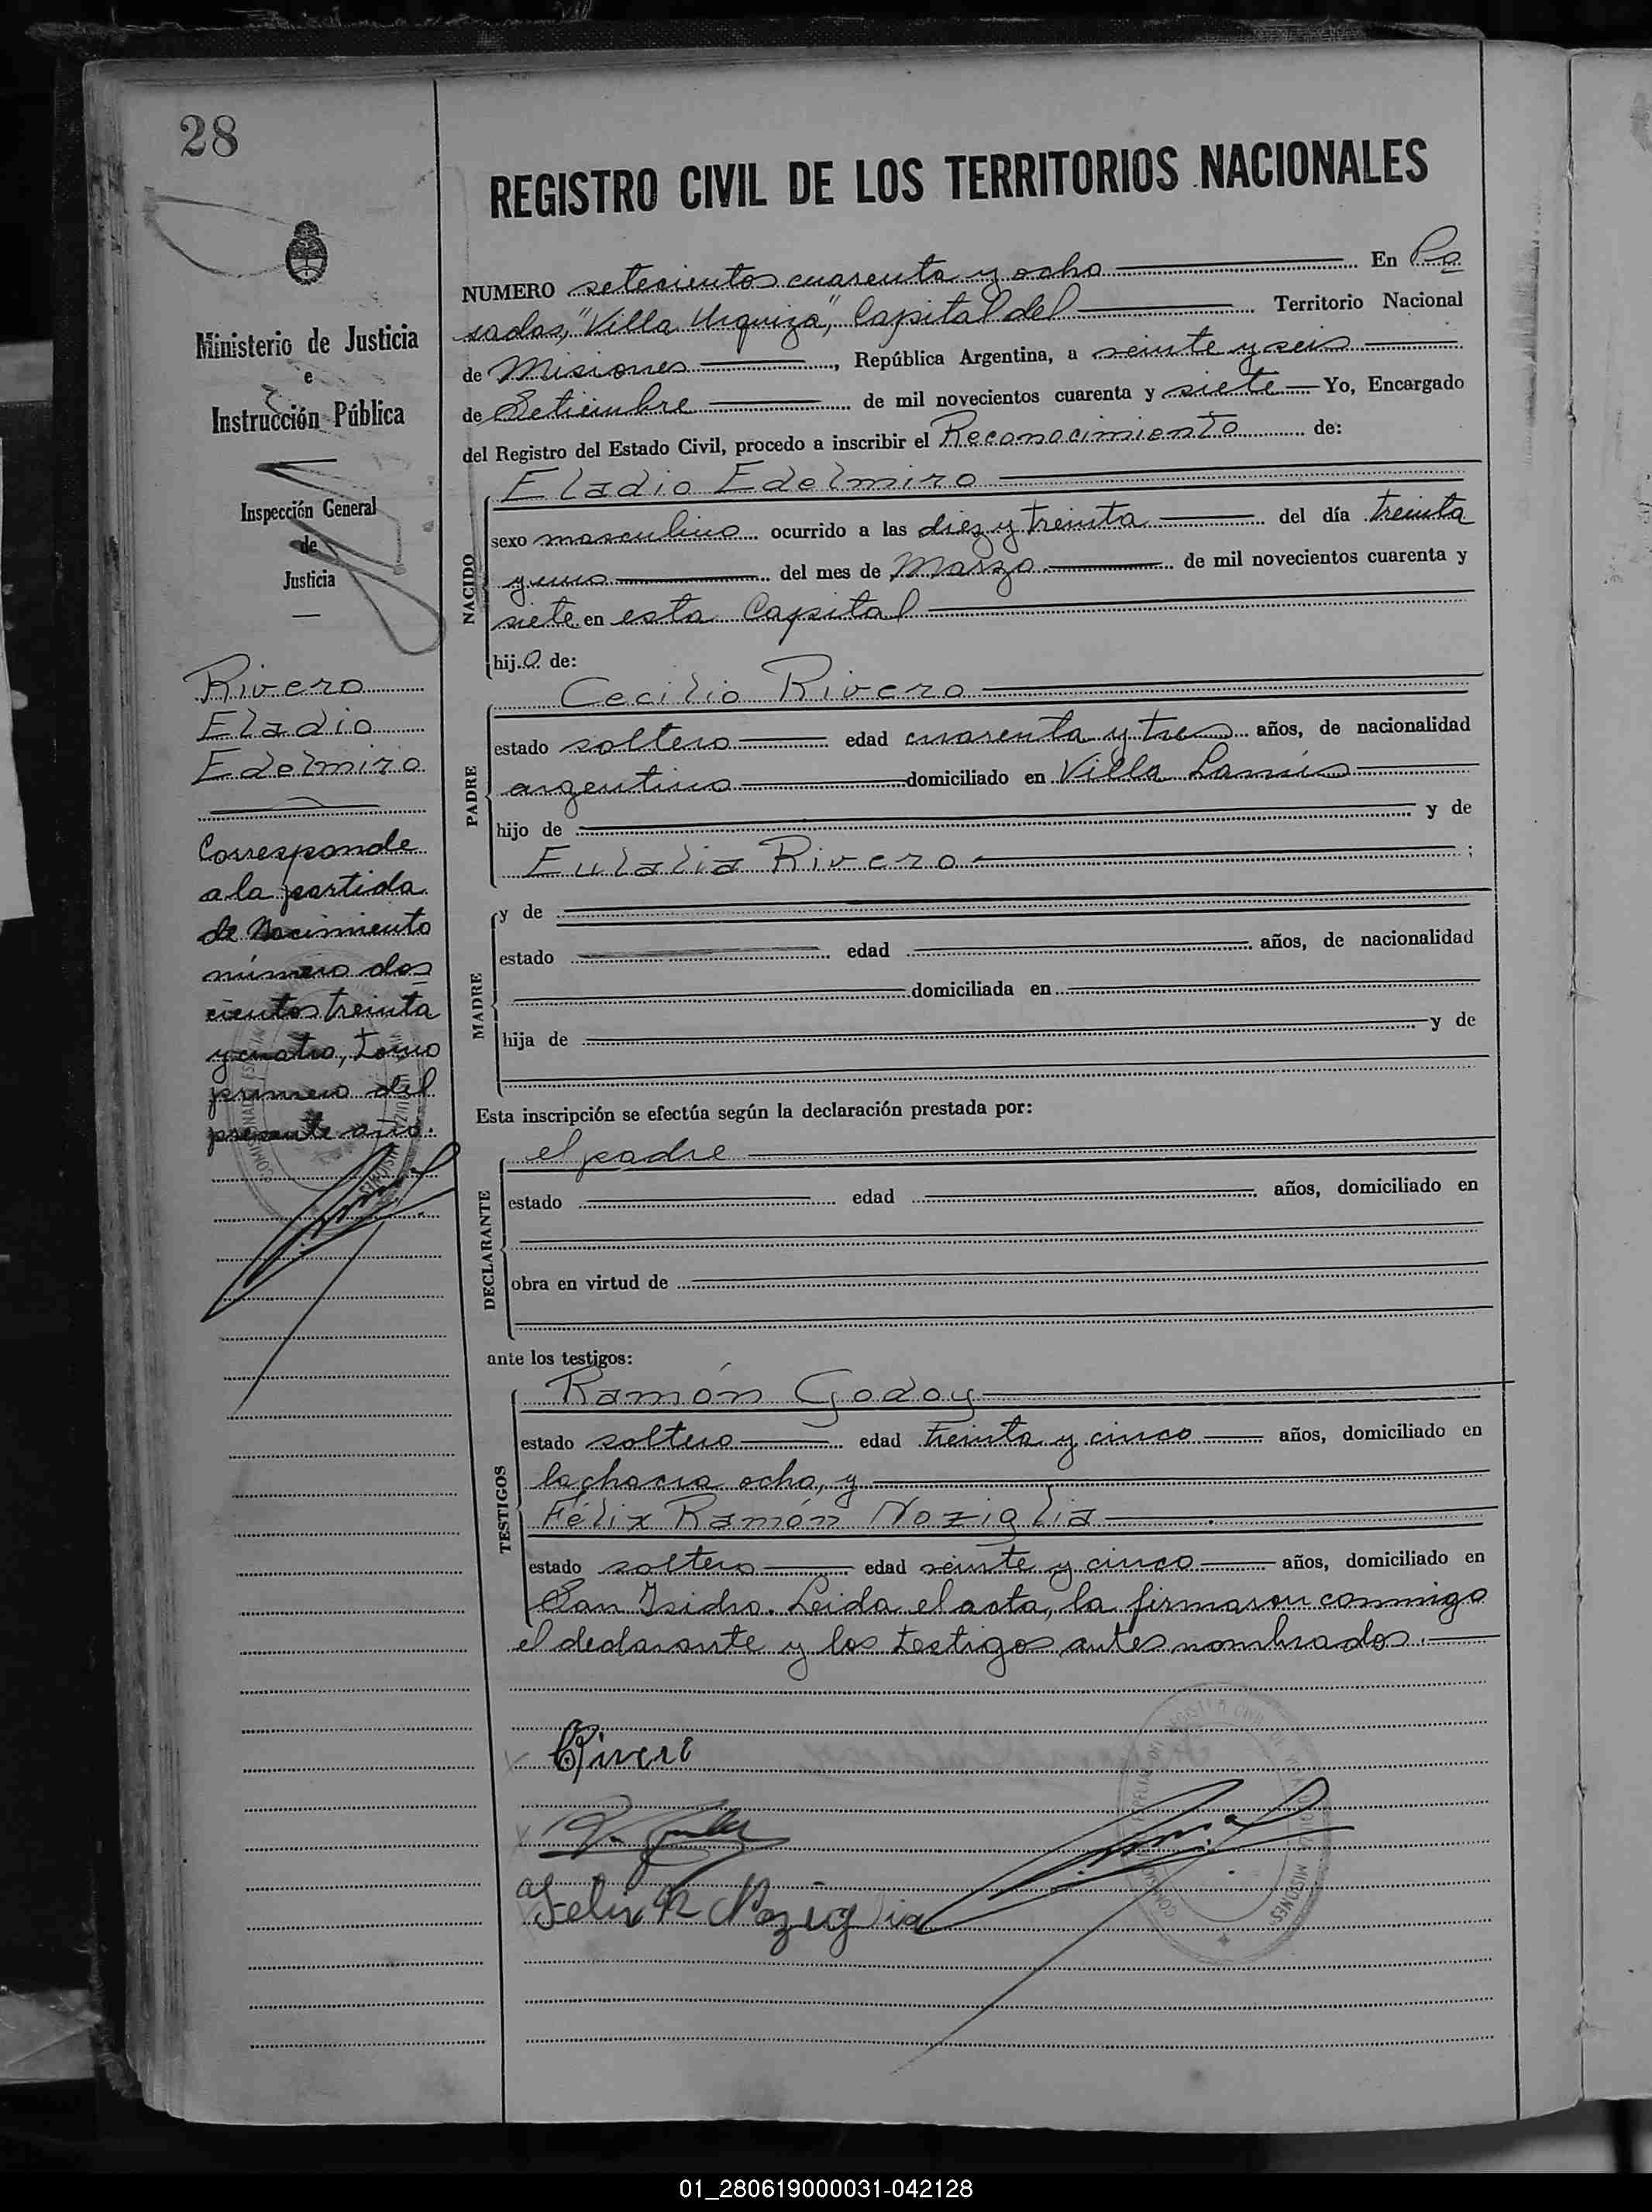 28
REGISTRO CIVIL DE LOS TERRITORIOS NACIONALES
Ministerio de Justicia
e
Instrucción Pública
Inspección General
de
Justicia
Rivero
Eladio
Edelmiro
Corresponde
a la partida
de Nacimiento
número dos
cientos treinta
y cuatro, tomo
primero del
presente año.
NUMERO setecientos cuarenta y ocho En Po
sadas, "Villa Urquiza", Capital del Territorio Nacional
de Misiones, República Argentina, a veinte y seis
de Setiembre de mil novecientos cuarenta y siete Yo, Encargado
del Registro del Estado Civil, procedo a inscribir el Reconocimiento de:
NACIDO
Eladio Edelmiro
sexo masculino ocurrido a las diez y treinta del día treinta
y uno del mes de Marzo de mil novecientos cuarenta y
siete en esta Capital
hijo de:
PADRE
Cecilio Rivero
estado soltero edad cuarenta y tres años, de nacionalidad
argentino domiciliado en Villa Lanús
hijo de y de
Eulalia Rivero ;
MADRE
y de
estado edad años, de nacionalidad
domiciliada en
hija de y de
Esta inscripción se efectúa según la declaración prestada por:
DECLARANTE
el padre
estado edad años, domiciliado en
obra en virtud de
ante los testigos:
TESTIGOS
Ramón Godoy
estado soltero edad treinta y cinco años, domiciliado en
la chacra ocho, y
Félix Ramón Noziglia
estado soltero edad veinte y cinco años, domiciliado en
San Isidro. Leida el acta, la firmaron conmigo
el declarante y los testigos antes nombrados.
Felix R Noziglia
01_280619000031-042128